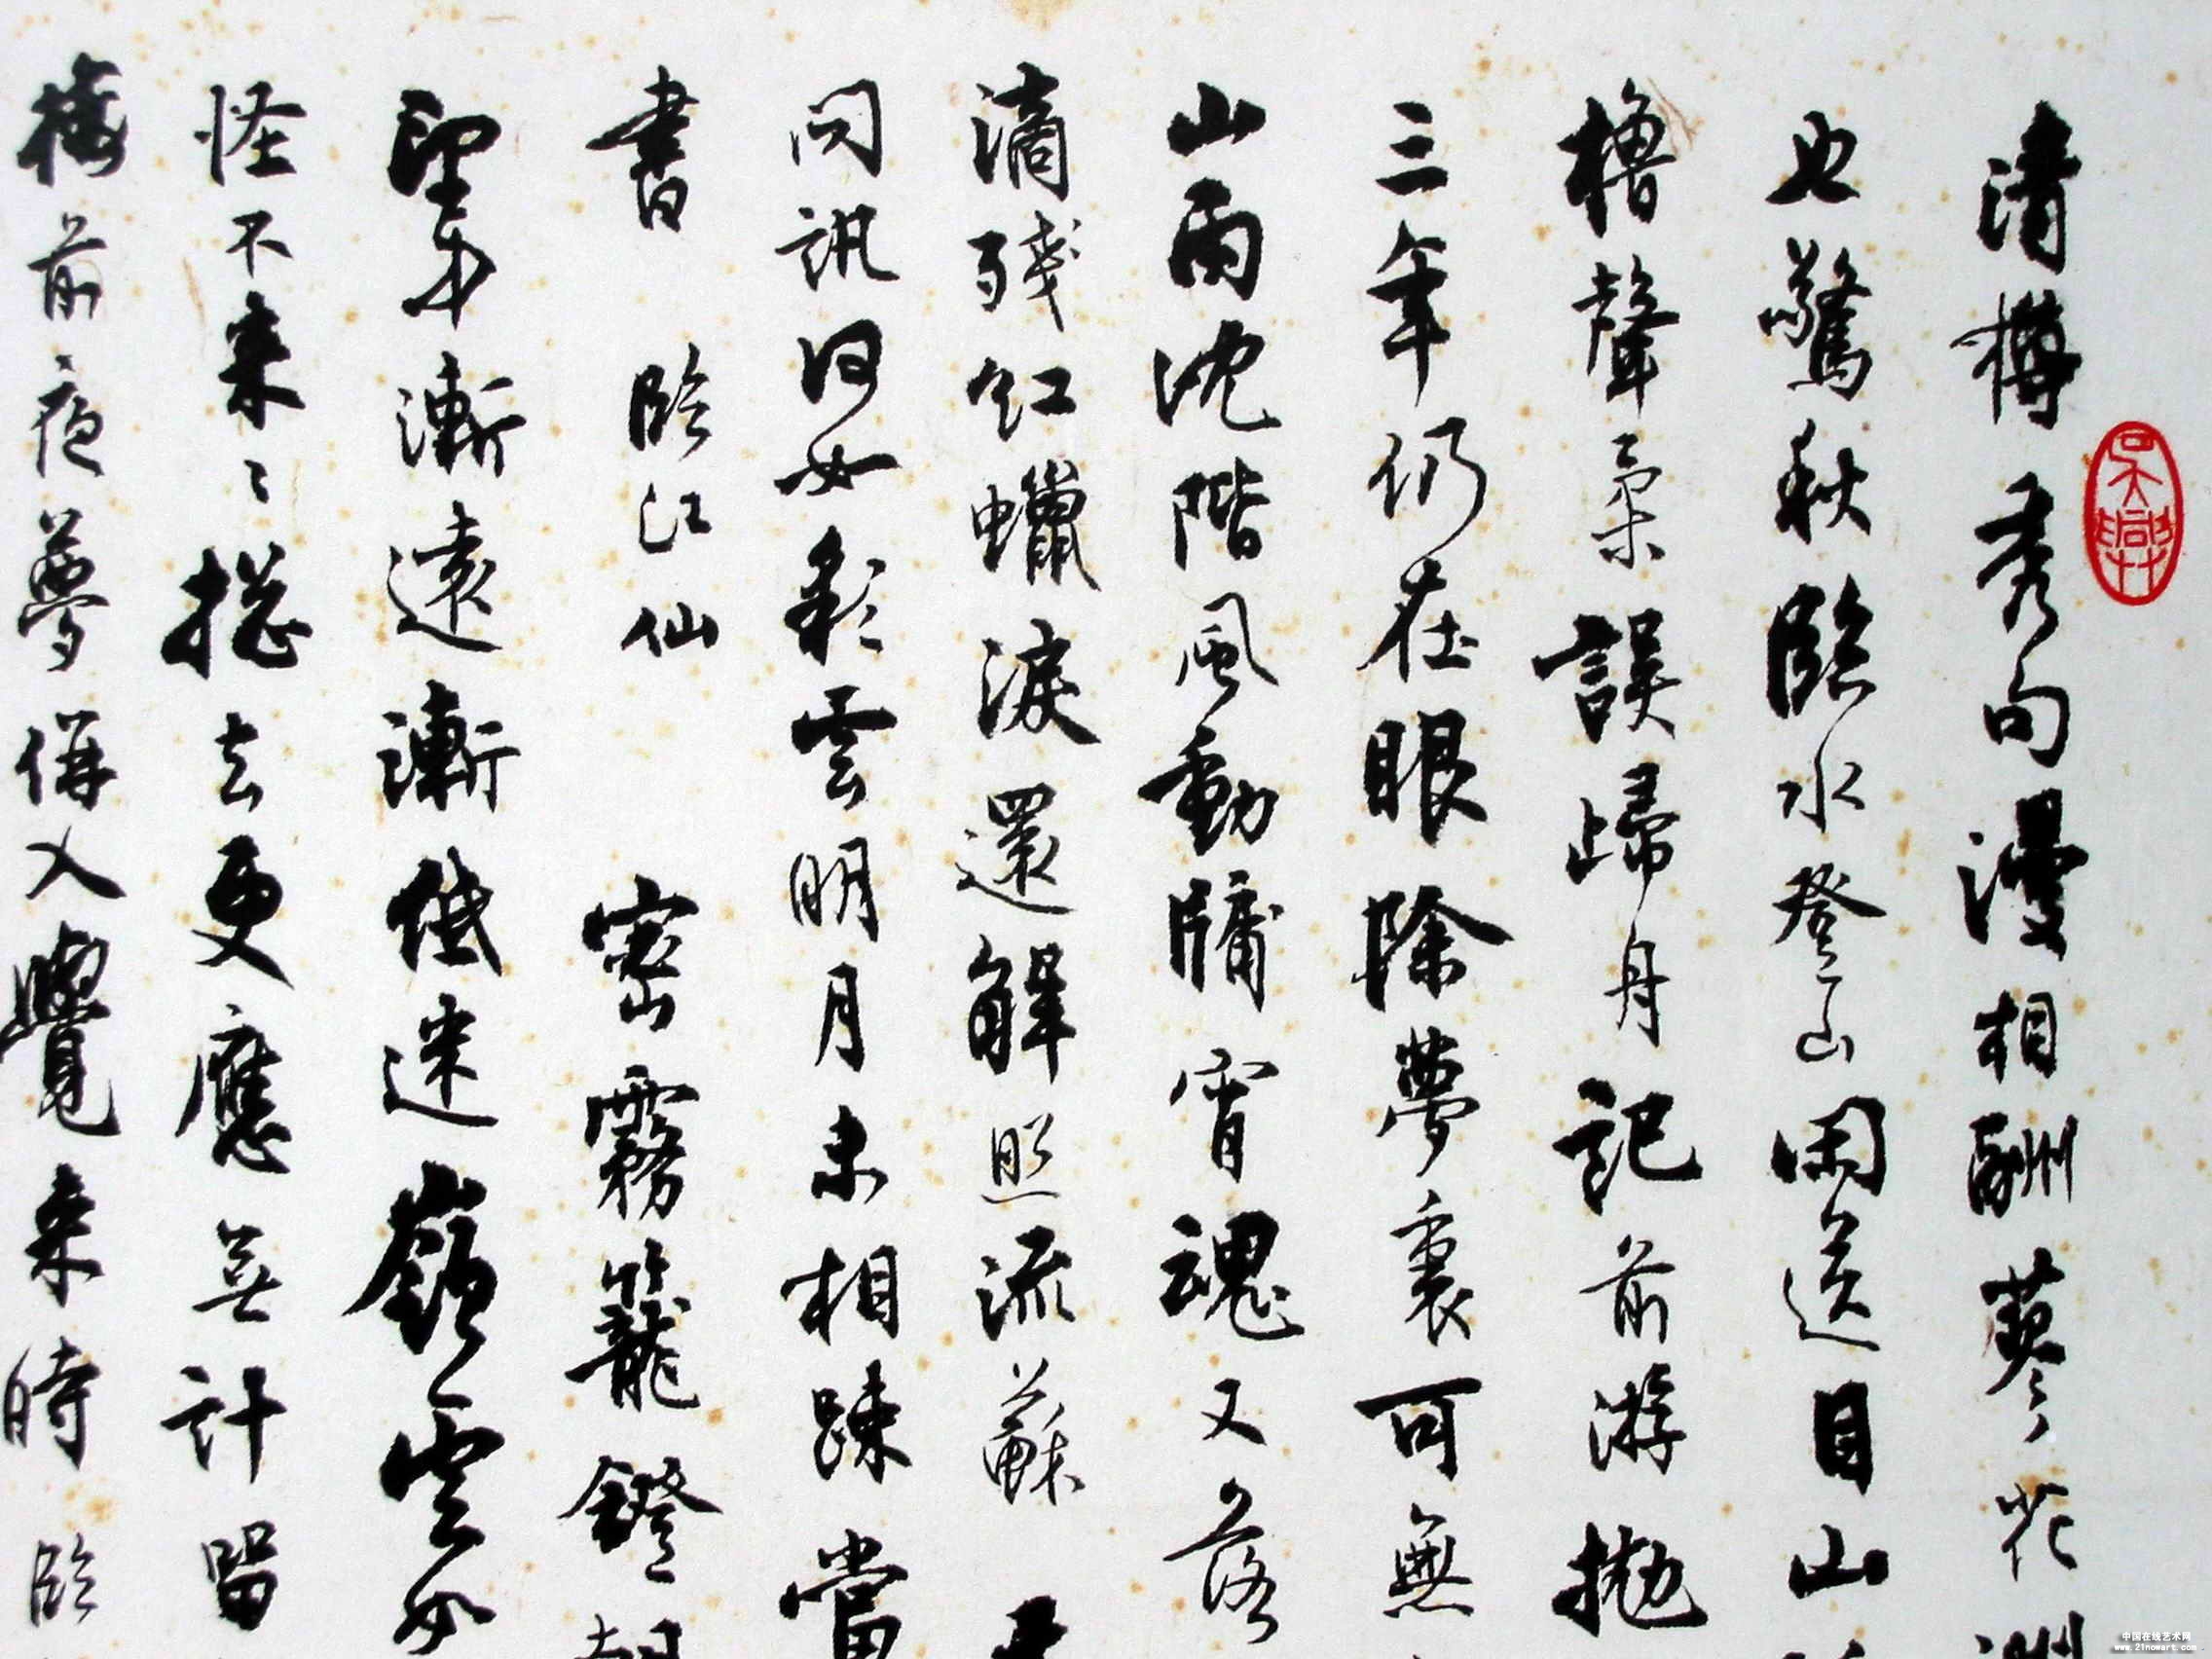 清樽秀句漫相酬蓼花洲
也驚秋臨水登山閑送目山
櫓聲柔誤歸舟記前游拋
三年仍在眼除夢裏可無
山雨沈階風動牖宵魂又落
滴殘紅蠟淚還解照流蘇
問訊何如彩雲明月未相疎當
書 臨江仙 密霧籠鐙朝
望中漸遠漸低迷嶺雲如
怪不來來拋去更應無計留
梅前夜夢併入覺來時臨
吳興
中国在线艺术网
www.21nowart.com